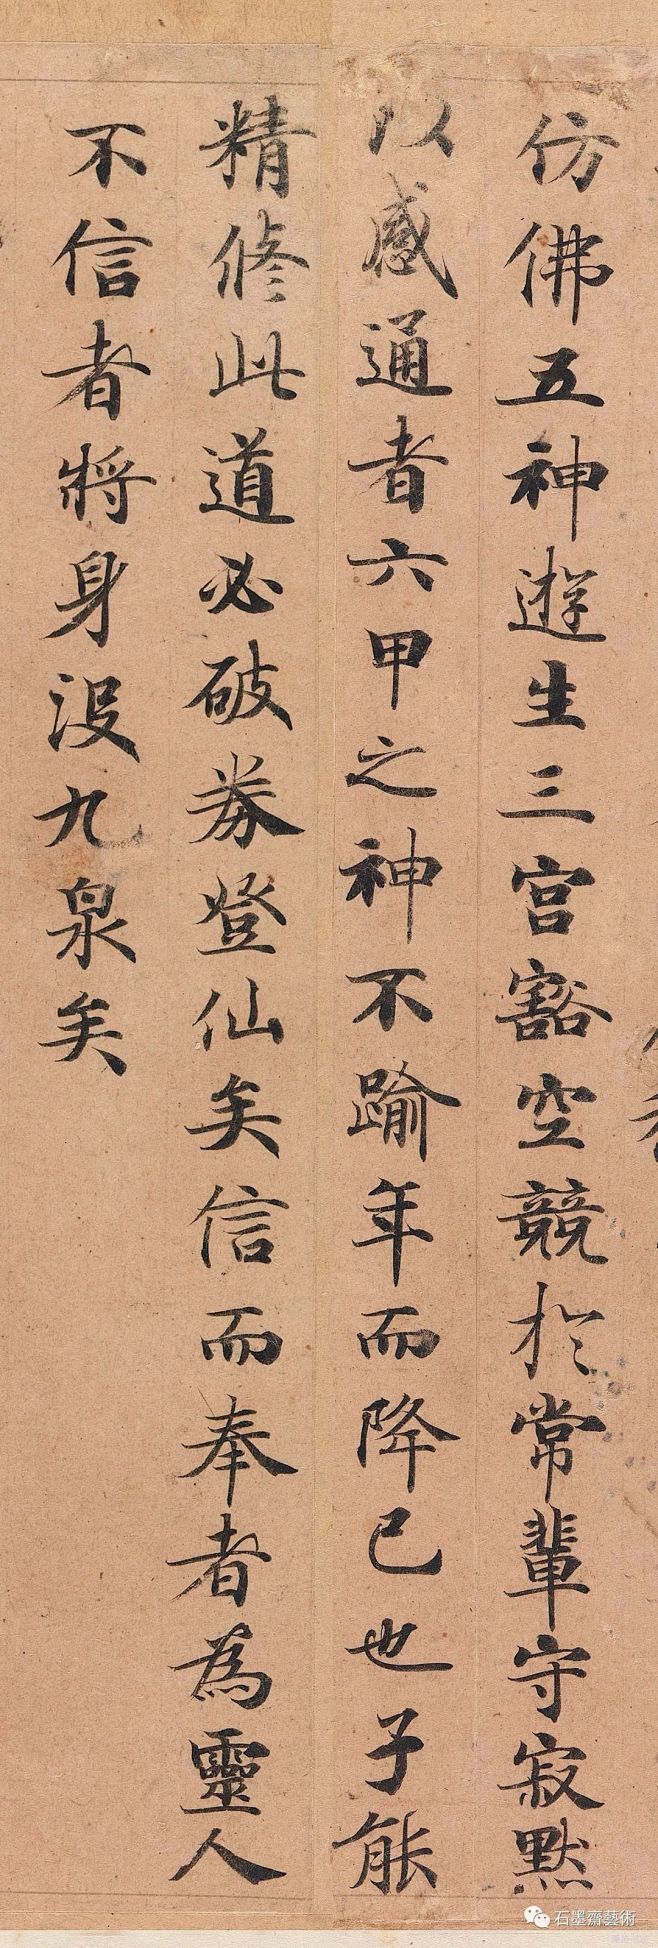 仿佛五神遊生三宮豁空競於常輩守寂默
以感通者六甲之神不踰年而降已也子能
精脩此道必破券登仙矣信而奉者為靈人
不信者將身沒九泉矣
石墨齋藝術